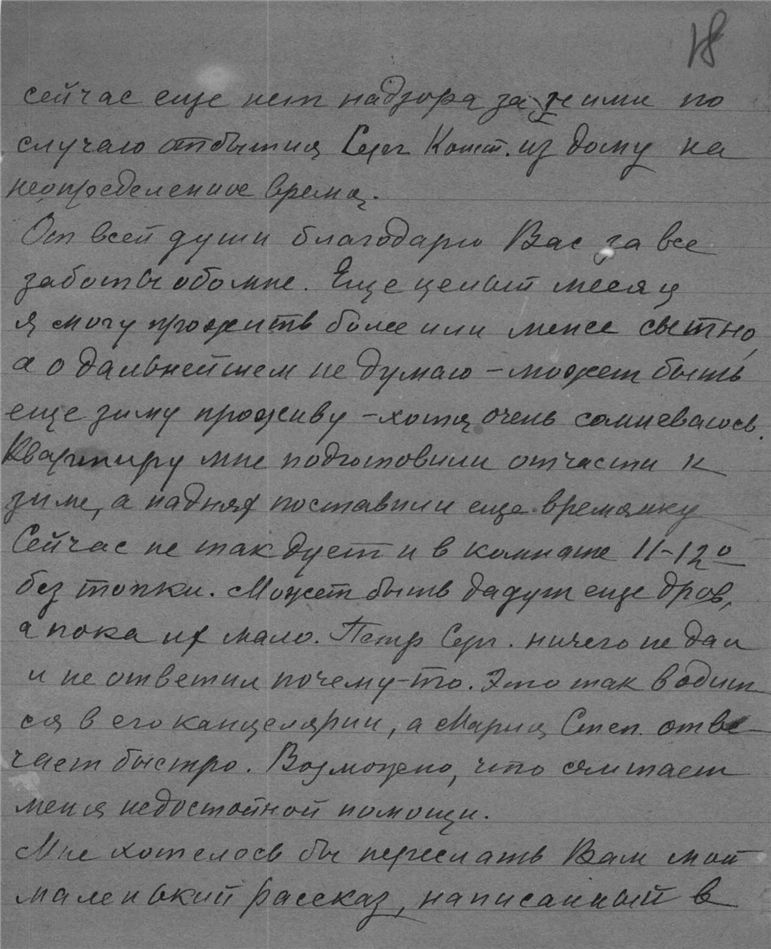 18
сейчас еще нет надзора за ними по
случаю отбытия Серг Конст. из дому на
неопределенное время.
От всей души благодарю Вас за все
заботы обо мне. Еще целый месяц
я могу прожить более или менее сытно,
а о дальнейшем не думаю – может быть
еще зиму проживу – хотя очень сомневаюсь.
Квартиру мне подготовили отчасти к
зиме, а на днях поставили еще времянку
Сейчас не так дует и в комнате 11–12°
без топки. Может быть дадут еще дров,
а пока их мало. Петр Серг. ничего не дал
и не ответил почему-то. Это так водит
ся в его канцелярии, а Мария Степ. отве-
чает быстро. Возможно, что считает
меня недостойной помощи.
Мне хотелось бы переслать Вам мой
маленький рассказ, написанный в